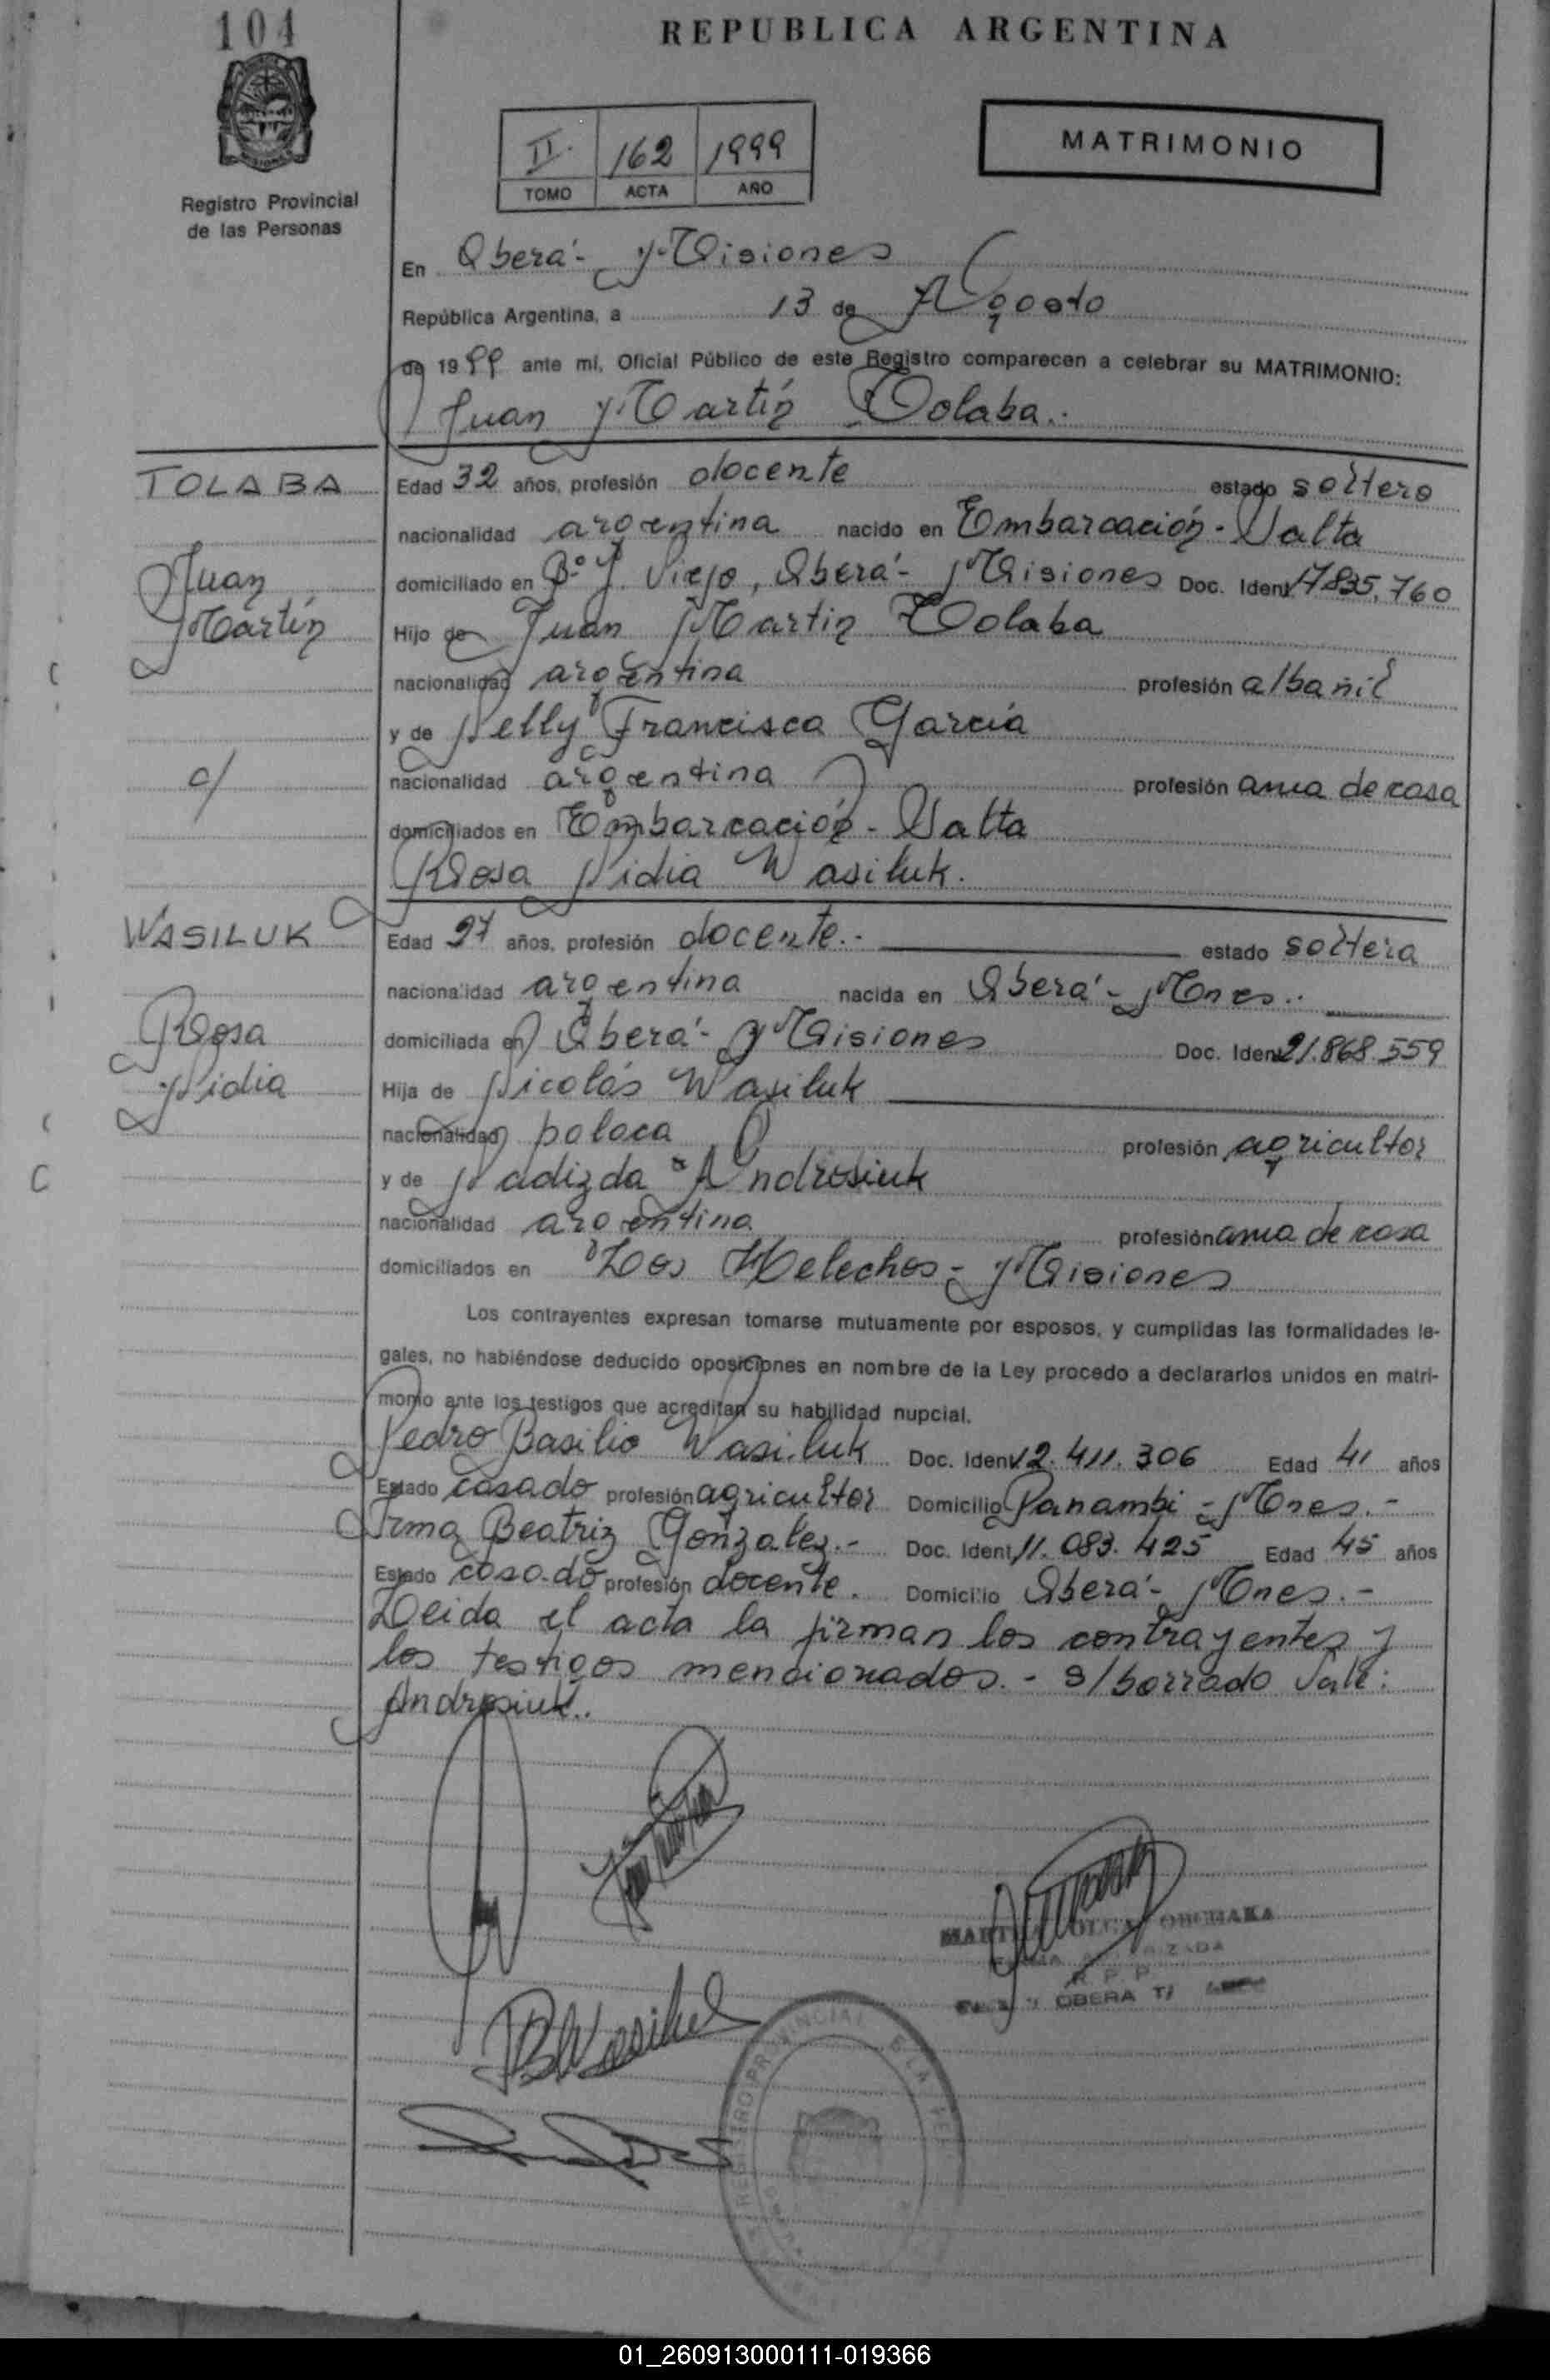 104
REPUBLICA ARGENTINA
MATRIMONIO
II. 162 1999
TOMO ACTA AÑO
Registro Provincial
de las Personas
En Oberá - Misiones
República Argentina, a 13 de Agosto
de 1999 ante mí, Oficial Público de este Registro comparecen a celebrar su MATRIMONIO:
Juan Martín Tolaba.-
TOLABA
Juan
Martín
c/
Edad 32 años, profesión docente estado soltero
nacionalidad argentina nacido en Embarcación - Salta
domiciliado en Bº Viejo, Oberá - Misiones Doc. Ident 17835.760
Hijo de Juan Martin Tolaba
nacionalidad argentina profesión albañil
y de Nelly Francisca García
nacionalidad argentina profesión ama de casa
domiciliados en Embarcación - Salta
Rosa Nidia Wasiluk.
WASILUK
Rosa
Nidia
Edad 27 años, profesión docente.- estado soltera
nacionalidad argentina nacida en Oberá - Mnes..
domiciliada en Oberá - Misiones Doc. Ident 21.868.559
Hija de Nicolás Wasiluk
nacionalidad polaca profesión agricultor
y de Nadizda Androsiuk
nacionalidad argentina profesión ama de casa
domiciliados en Los Helechos - Misiones
Los contrayentes expresan tomarse mutuamente por esposos, y cumplidas las formalidades le-
gales, no habiéndose deducido oposiciones en nombre de la Ley procedo a declararlos unidos en matri-
monio ante los testigos que acreditan su habilidad nupcial.
Pedro Basilio Wasiluk Doc. Ident 12.411.306 Edad 41 años
Estado casado profesión agricultor Domicilio Panambi - Mnes.-
Irma Beatriz Gonzalez.- Doc. Ident 11.083.425 Edad 45 años
Estado casado profesión docente. Domicilio Oberá - Mnes.-
Leida el acta la firman los contrayentes y
los testigos mencionados.- s/borrado Vale:
Androsiuk..
OBERA
01_260913000111-019366